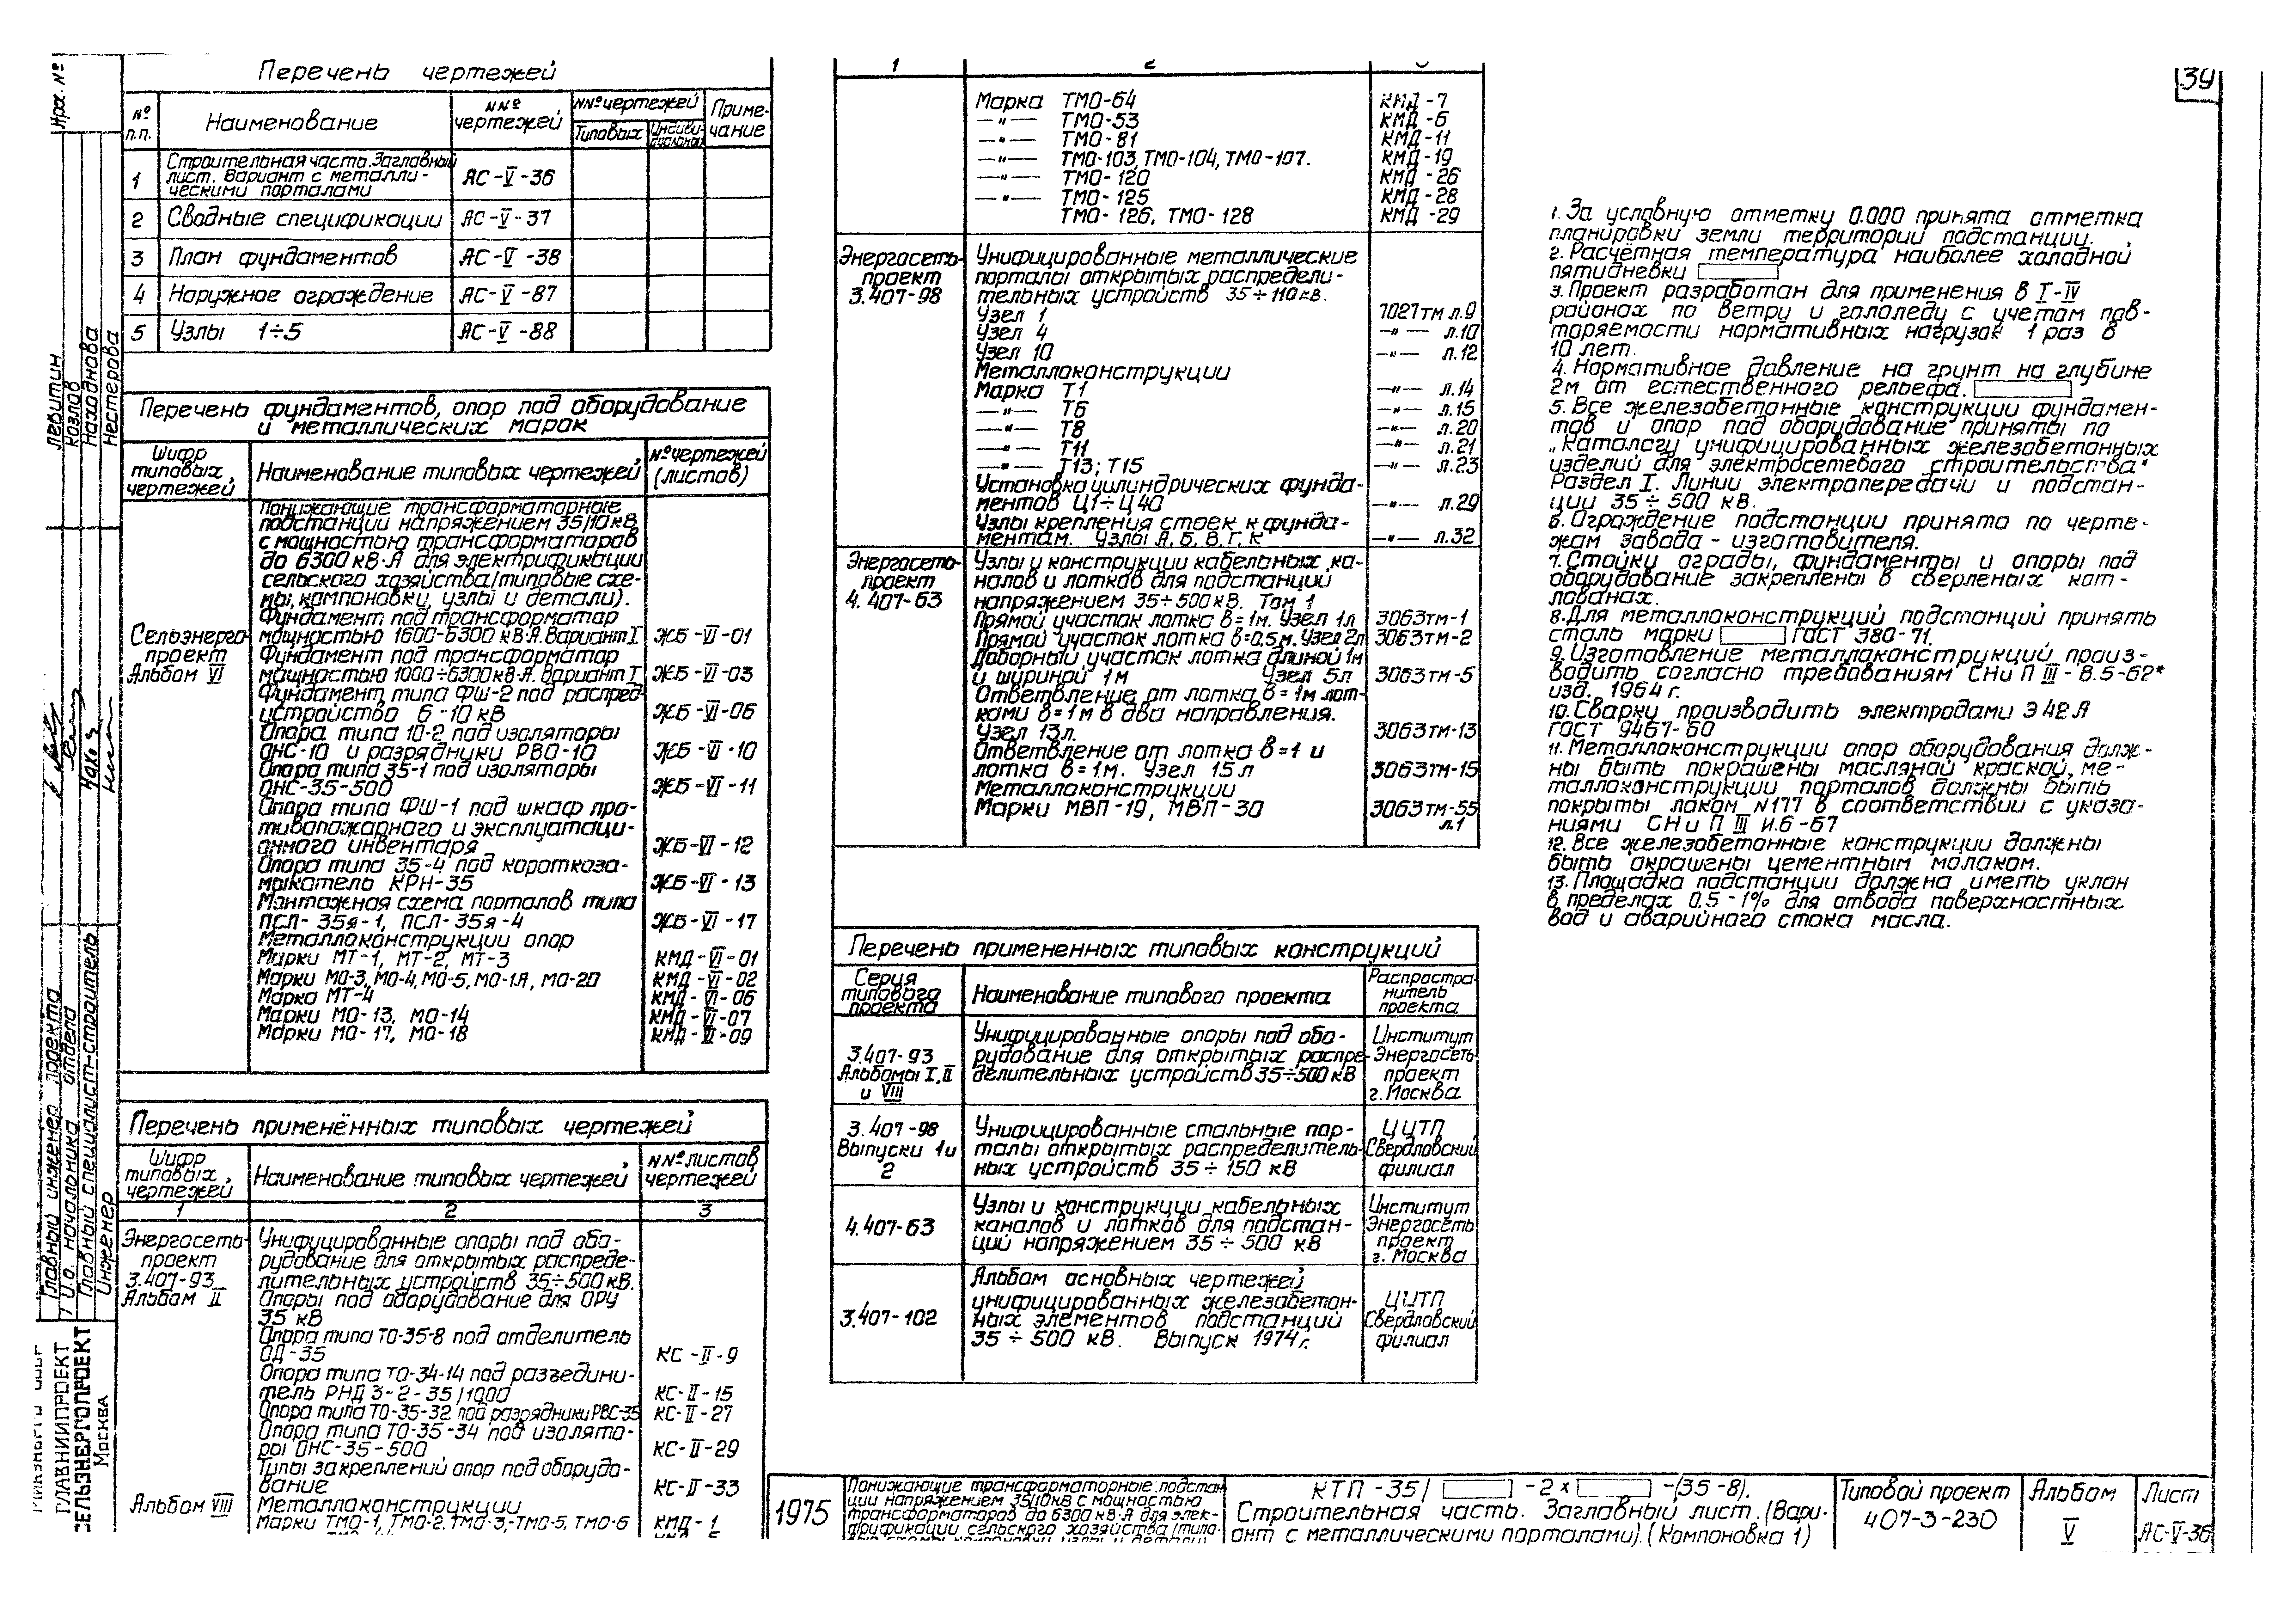 39
Перечень чертежей
№ п.п.
Наименование
NN° чертежей
NN° чертежей
Типовых
Индиви-
дуальных
Приме-
чание
1
Строительная часть. Заглавный
лист. Вариант с металли-
ческими порталами
АС-V-36
2 Сводные спецификации АС-V-37
3 План фундаментов АС-V-38
4 Наружное ограждение АС-V-87
5 Узлы 1÷5 АС-V-88
Перечень фундаментов, опор под оборудование
и металлических марок
Шифр
типовых
чертежей
Наименование типовых чертежей
N° чертежей
(листов)
Сельэнерго-
проект
Альбом VI
Понижающие трансформаторные
подстанции напряжением 35/10 кВ
с мощностью трансформаторов
до 6300 кВ·А для электрификации
сельского хозяйства (типовые схе-
мы, компоновки, узлы и детали).
Фундамент под трансформатор
мощностью 1600-6300 кВ·А. Вариант I ЖБ-VI-01
Фундамент под трансформатор
мощностью 1000÷6300 кВ·А. Вариант I ЖБ-VI-03
Фундамент типа ФШ-2 под распред-
устройство 6-10 кВ ЖБ-VI-06
Опора типа 10-2 под изоляторы
ОНС-10 и разрядники РВО-10 ЖБ-VI-10
Опора типа 35-1 под изоляторы
ОНС-35-500 ЖБ-VI-11
Опора типа ФШ-1 под шкаф про-
тивопожарного и эксплуатаци-
онного инвентаря ЖБ-VI-12
Опора типа 35-4 под короткоза-
мыкатель КРН-35 ЖБ-VI-13
Монтажная схема порталов типа
ПСЛ-35я-1, ПСЛ-35я-4 ЖБ-VI-17
Металлоконструкции опор
Марки МТ-1, МТ-2, МТ-3 КМД-VI-01
Марки МО-3, МО-4, МО-5, МО-1А, МО-20 КМД-VI-02
Марка МТ-4 КМД-VI-06
Марки МО-13, МО-14 КМД-VI-07
Марки МО-17, МО-18 КМД-VI-09
Перечень применённых типовых чертежей
Шифр
типовых
чертежей
Наименование типовых чертежей
NN° листов
чертежей
1 2 3
Энергосеть-
проект
3.407-93
Альбом II
Унифицированные опоры под обо-
рудование для открытых распреде-
лительных устройств 35÷500 кВ.
Опоры под оборудование для ОРУ
35 кВ
Опора типа ТО-35-8 под отделитель
ОД-35 КС-II-9
Опора типа ТО-34-14 под разъедини-
тель РНД З-2-35/1000 КС-II-15
Опора типа ТО-35-32 под разрядники РВС-35 КС-II-27
Опора типа ТО-35-34 под изолято-
ры ОНС-35-500 КС-II-29
Типы закреплений опор под оборудо-
вание КС-II-33
Альбом VIII
Металлоконструкции
Марки ТМО-1, ТМО-2, ТМО-3, ТМО-5, ТМО-6 КМД-1
1 2
Марка ТМО-64 КМД-7
—"— ТМО-53 КМД-6
—"— ТМО-81 КМД-11
—"— ТМО-103, ТМО-104, ТМО-107. КМД-19
—"— ТМО-120 КМД-26
—"— ТМО-125 КМД-28
ТМО-126, ТМО-128 КМД-29
Энергосеть-
проект
3.407-98
Унифицированные металлические
порталы открытых распредели-
тельных устройств 35÷110 кВ.
Узел 1 7027тм л.9
Узел 4 —"— л.10
Узел 10 —"— л.12
Металлоконструкции
Марка Т1 —"— л.14
—"— Т6 —"— л.15
—"— Т8 —"— л.20
—"— Т11 —"— л.21
—"— Т13; Т15 —"— л.23
Установка цилиндрических фунда-
ментов Ц1÷Ц40 —"— л.29
Узлы крепления стоек к фунда-
ментам. Узлы А, Б, В, Г, К —"— л.32
Энергосеть-
проект
4.407-63
Узлы и конструкции кабельных ка-
налов и лотков для подстанций
напряжением 35÷500 кВ. Том 1
Прямой участок лотка в=1м. Узел 1л 3063тм-1
Прямой участок лотка в=0,5м. Узел 2л 3063тм-2
Доборный участок лотка длиной 1м
и шириной 1м Узел 5л 3063тм-5
Ответвление от лотка в=1м лот-
ками в=1м в два направления.
Узел 13л. 3063тм-13
Ответвление от лотка в=1 и
лотка в=1м. Узел 15л 3063тм-15
Металлоконструкции
Марки МВП-19, МВП-30 3063тм-55
л.1
Перечень примененных типовых конструкций
Серия
типового
проекта
Наименование типового проекта
Распростра-
нитель
проекта
3.407-93
Альбомы I, II
и VIII
Унифицированные опоры под обо-
рудование для открытых распре-
делительных устройств 35÷500 кВ
Институт
Энергосеть-
проект
г. Москва
3.407-98
Выпуски 1и
2
Унифицированные стальные пор-
талы открытых распределитель-
ных устройств 35÷150 кВ
ЦИТП
Свердловский
филиал
4.407-63
Узлы и конструкции кабельных
каналов и лотков для подстан-
ций напряжением 35÷500 кВ
Институт
Энергосеть
проект
г. Москва
3.407-102
Альбом основных чертежей
унифицированных железобетон-
ных элементов подстанций
35÷500 кВ. Выпуск 1974г.
ЦИТП
Свердловский
филиал
1. За условную отметку 0.000 принята отметка
планировки земли территории подстанции.
2. Расчётная температура наиболее холодной
пятидневки
3. Проект разработан для применения в I-IV
районах по ветру и гололеду с учетом пов-
торяемости нормативных нагрузок 1 раз в
10 лет.
4. Нормативное давление на грунт на глубине
2м от естественного рельефа.
5. Все железобетонные конструкции фундамен-
тов и опор под оборудование приняты по
„Каталогу унифицированных железобетонных
изделий для электросетевого строительства"
Раздел I. Линии электропередачи и подстан-
ции 35÷500 кВ.
6. Ограждение подстанции принято по черте-
жам завода-изготовителя.
7. Стойки ограды, фундаменты и опоры под
оборудование закреплены в сверленых кот-
лованах.
8. Для металлоконструкций подстанций принять
сталь марки ГОСТ 380-71.
9. Изготовление металлоконструкций произ-
водить согласно требованиям СНиП III-В.5-62*
изд. 1964г.
10. Сварку производить электродами Э42А
ГОСТ 9467-60
11. Металлоконструкции опор оборудования долж-
ны быть покрашены масляной краской, ме-
таллоконструкции порталов должны быть
покрыты лаком N177 в соответствии с указа-
ниями СНиП III И.6-67
12. Все железобетонные конструкции должны
быть окрашены цементным молоком.
13. Площадка подстанции должна иметь уклон
в пределах 0,5-1% для отвода поверхностных
вод и аварийного стока масла.
Левитин
Козлов
Находнова
Нестерова
Главный инженер проекта
И.о. начальника отдела
Главный специалист-строитель
Инженер
ГЛАВНИИПРОЕКТ
СЕЛЬЭНЕРГОПРОЕКТ
Москва
1975
Понижающие трансформаторные подстан
ции напряжением 35/10кВ с мощностью
трансформаторов до 6300 кВ·А для элек-
трификации сельского хозяйства (типо-
вые схемы, компоновки, узлы и детали)
КТП-35/ -2× -(35-8).
Строительная часть. Заглавный лист. (Вари-
ант с металлическими порталами). (Компоновка 1)
Типовой проект
407-3-230
Альбом
V
Лист
АС-V-36